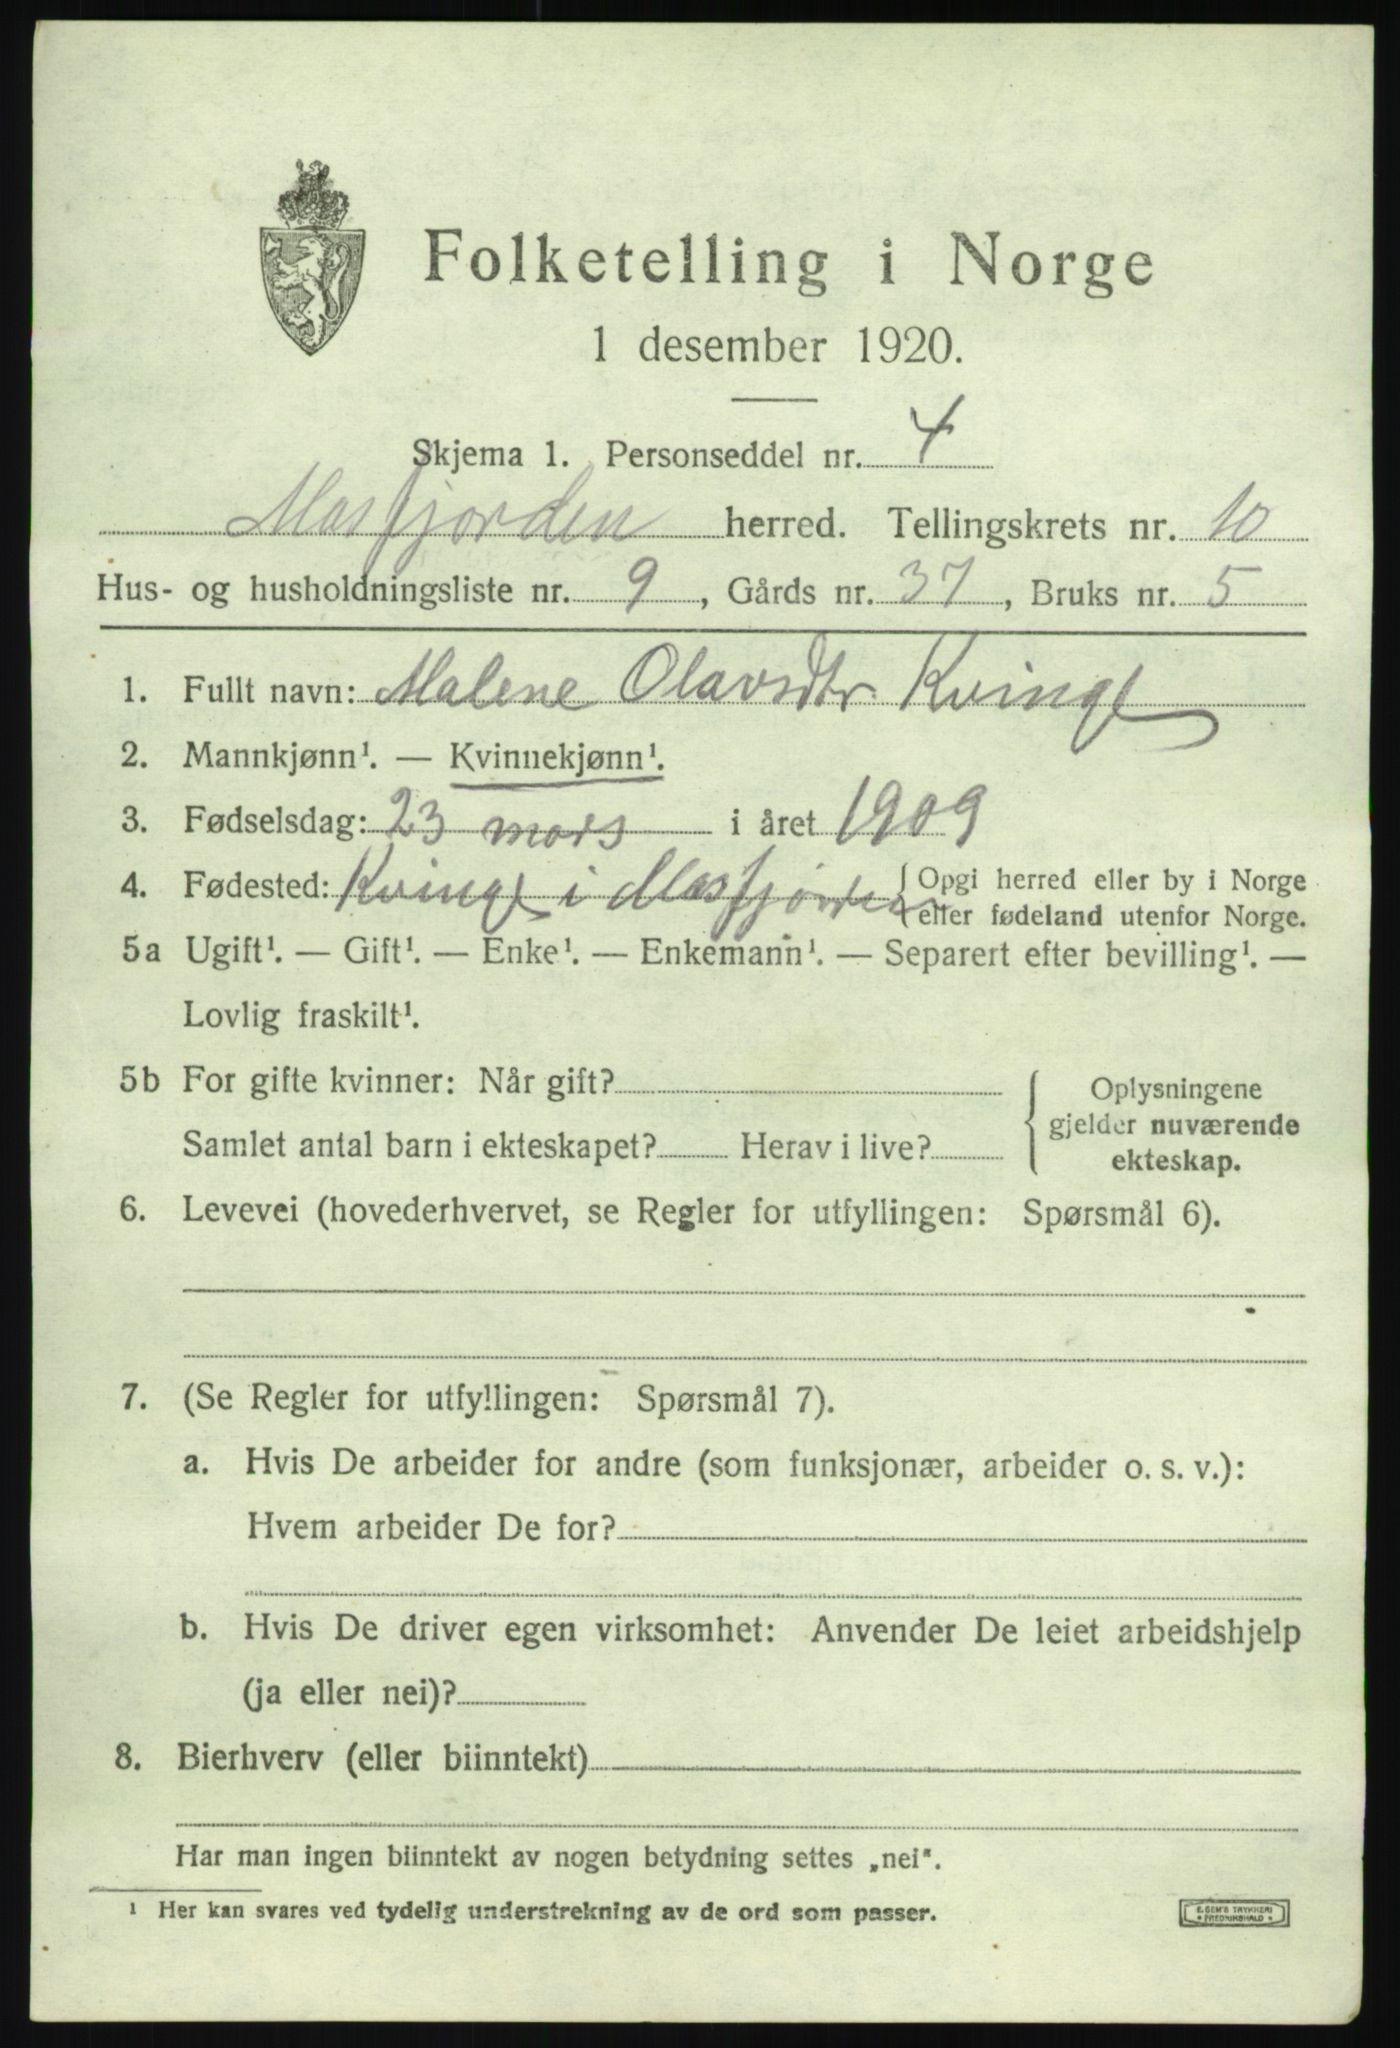 Folketelling i Norge
1 desember 1920.
Skjema 1. Personseddel nr. 4
Masfjorden herred. Tellingskrets nr. 10
Hus- og husholdningsliste nr. 9, Gårds nr. 37, Bruks nr. 5
1. Fullt navn: Malene Olavsdtr. Kvinge
2. Mannkjønn¹. — Kvinnekjønn¹.
3. Fødselsdag: 23 mars i året 1909
4. Fødested: Kvinge i Masfjorden { Opgi herred eller by i Norge
eller fødeland utenfor Norge.
5a Ugift¹. — Gift¹. — Enke¹. — Enkemann¹. — Separert efter bevilling¹. —
Lovlig fraskilt¹.
5b For gifte kvinner: Når gift?
Samlet antal barn i ekteskapet? Herav i live?
{ Oplysningene
gjelder nuværende
ekteskap.
6. Levevei (hovederhvervet, se Regler for utfyllingen: Spørsmål 6).
7. (Se Regler for utfyllingen: Spørsmål 7).
a. Hvis De arbeider for andre (som funksjonær, arbeider o. s. v.):
Hvem arbeider De for?
b. Hvis De driver egen virksomhet: Anvender De leiet arbeidshjelp
(ja eller nei)?
8. Bierhverv (eller biinntekt)
Har man ingen biinntekt av nogen betydning settes „nei".
¹ Her kan svares ved tydelig understrekning av de ord som passer.
E. SEM'S TRYKKERI
FREDRIKSHALD